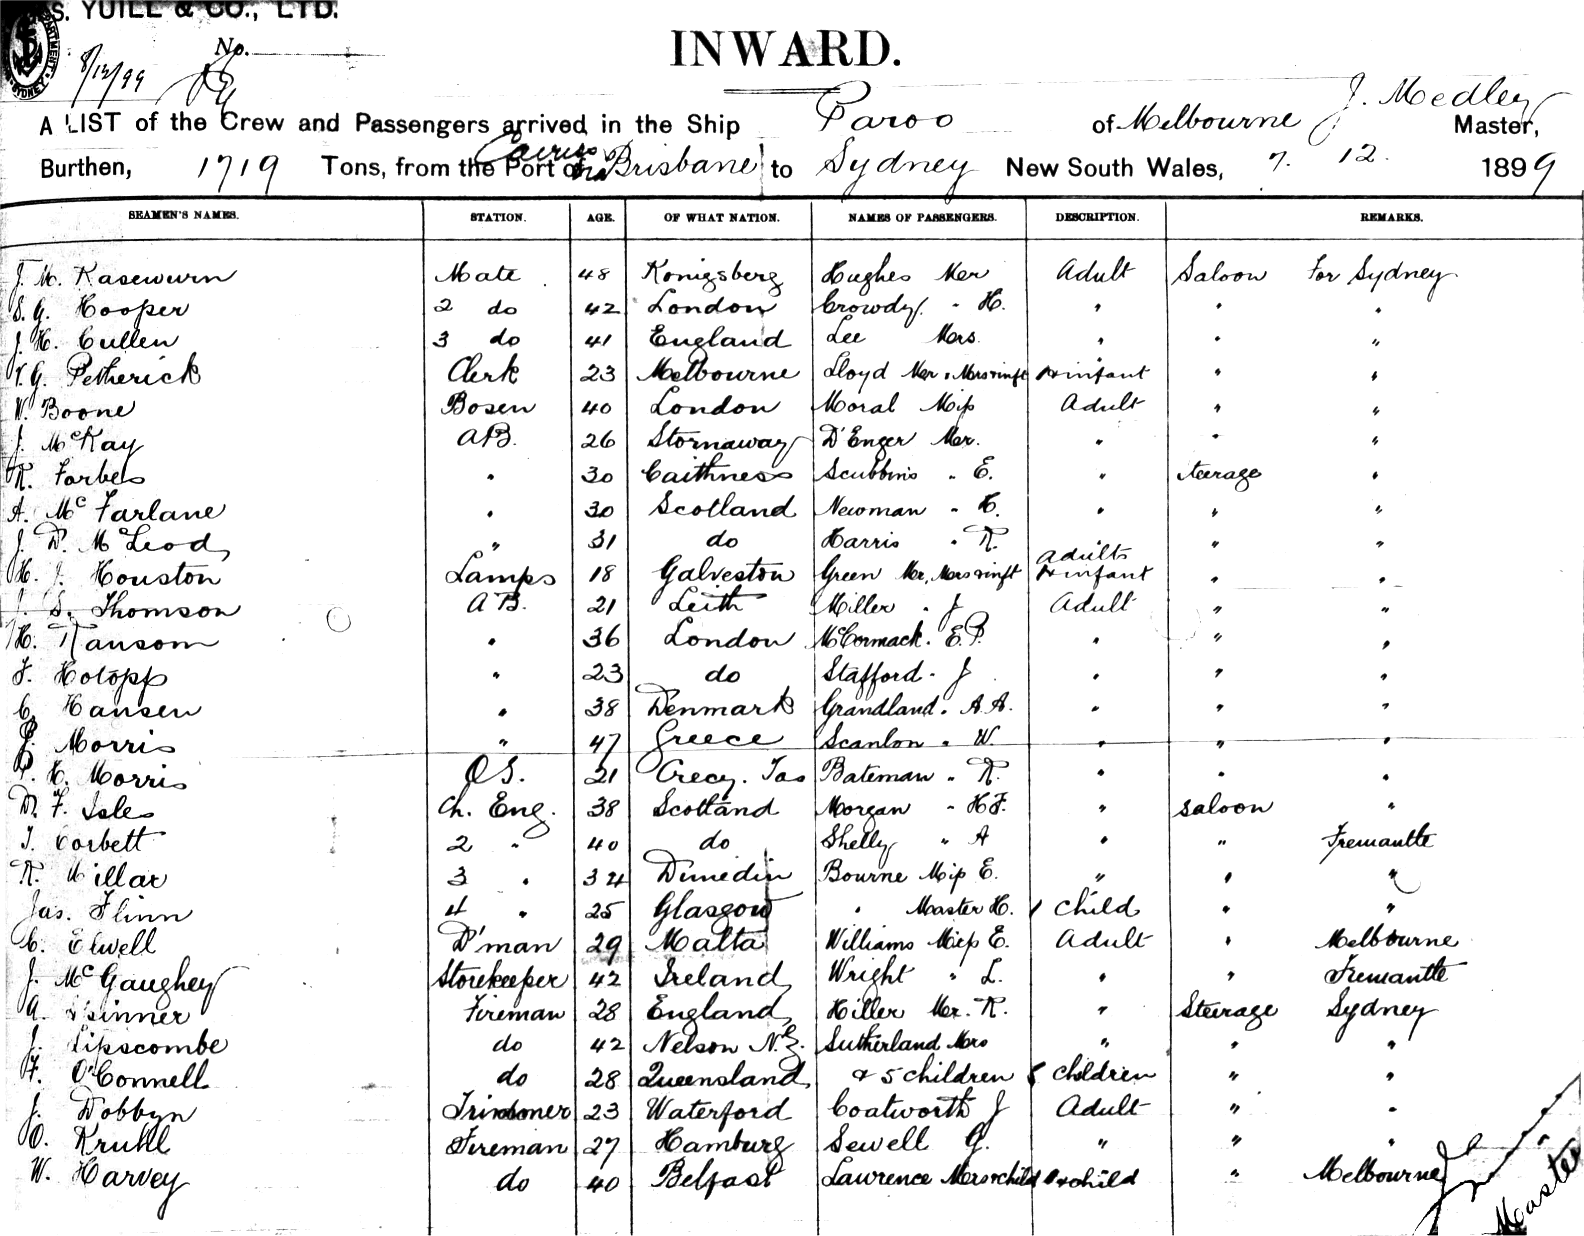 S. YUILL & CO., LTD.
No.
8/12/99
INWARD.
J. Medley
A LIST of the Crew and Passengers arrived in the Ship Paroo of Melbourne Master,
Cairns
Burthen, 1719 Tons, from the Port of via Brisbane to Sydney New South Wales, 7. 12. 1899
SEAMEN'S NAMES. STATION. AGE. OF WHAT NATION. NAMES OF PASSENGERS. DESCRIPTION. REMARKS.
J. M. Kasewurn Mate 48 Konigsberg Hughes Mr Adult Saloon For Sydney
S. G. Hooper 2 do 42 London Crowdy " H. " " "
J. H. Cullen 3 do 41 England Lee Mrs. " " "
V. G. Petherick Clerk 23 Melbourne Lloyd Mr, Mrs & inft & infant " "
W. Boone Bosen 40 London Moral Miss Adult " "
J. McKay AB. 26 Stornaway D'Enger Mr. " " "
R. Forbes " 30 Caithness Scubbins " E. " steerage "
A. McFarlane " 30 Scotland Newman " H. " " "
J. D. McLeod " 31 do Harris " R. " " "
adults
H. J. Houston Lamps 18 Galveston Green Mr, Mrs & inft & infant " "
J. S. Thomson AB. 21 Leith Miller " J Adult " "
H. Ransom " 36 London McCormack " E.P. " " "
F. Holopp " 23 do Stafford " J " " "
C. Hansen " 38 Denmark Grandland " A.A. " " "
J. Morris " 47 Greece Scanlon " W. " " "
P. H. Morris O.S. 21 Crecy. Tas Bateman " R. " " "
D. F. Isles Ch. Eng. 38 Scotland Morgan " H.F. " saloon "
T. Corbett 2 " 40 do Shelly " A " " Fremantle
R. Millar 3 " 34 Dunedin Bourne Miss E. " " "
Jas. Flinn 4 " 25 Glasgow " Master H. 1 child " "
C. Elwell D'man 29 Malta Williams Miss E. Adult " Melbourne
J. McGaughey Storekeeper 42 Ireland Wright " L. " " Fremantle
A. Skinner Fireman 28 England Hiller Mr. R. " Steerage Sydney
J. Lipscombe do 42 Nelson N.Z. Sutherland Mrs " " "
F. O'Connell do 28 Queensland & 5 children 5 children " "
J. Dobbyn Trimmer 23 Waterford Coatworth J Adult " "
O. Kruhl Fireman 27 Hamburg Sewell G. " " "
W. Harvey do 40 Belfast Lawrence Mrs & child & child " Melbourne
Master